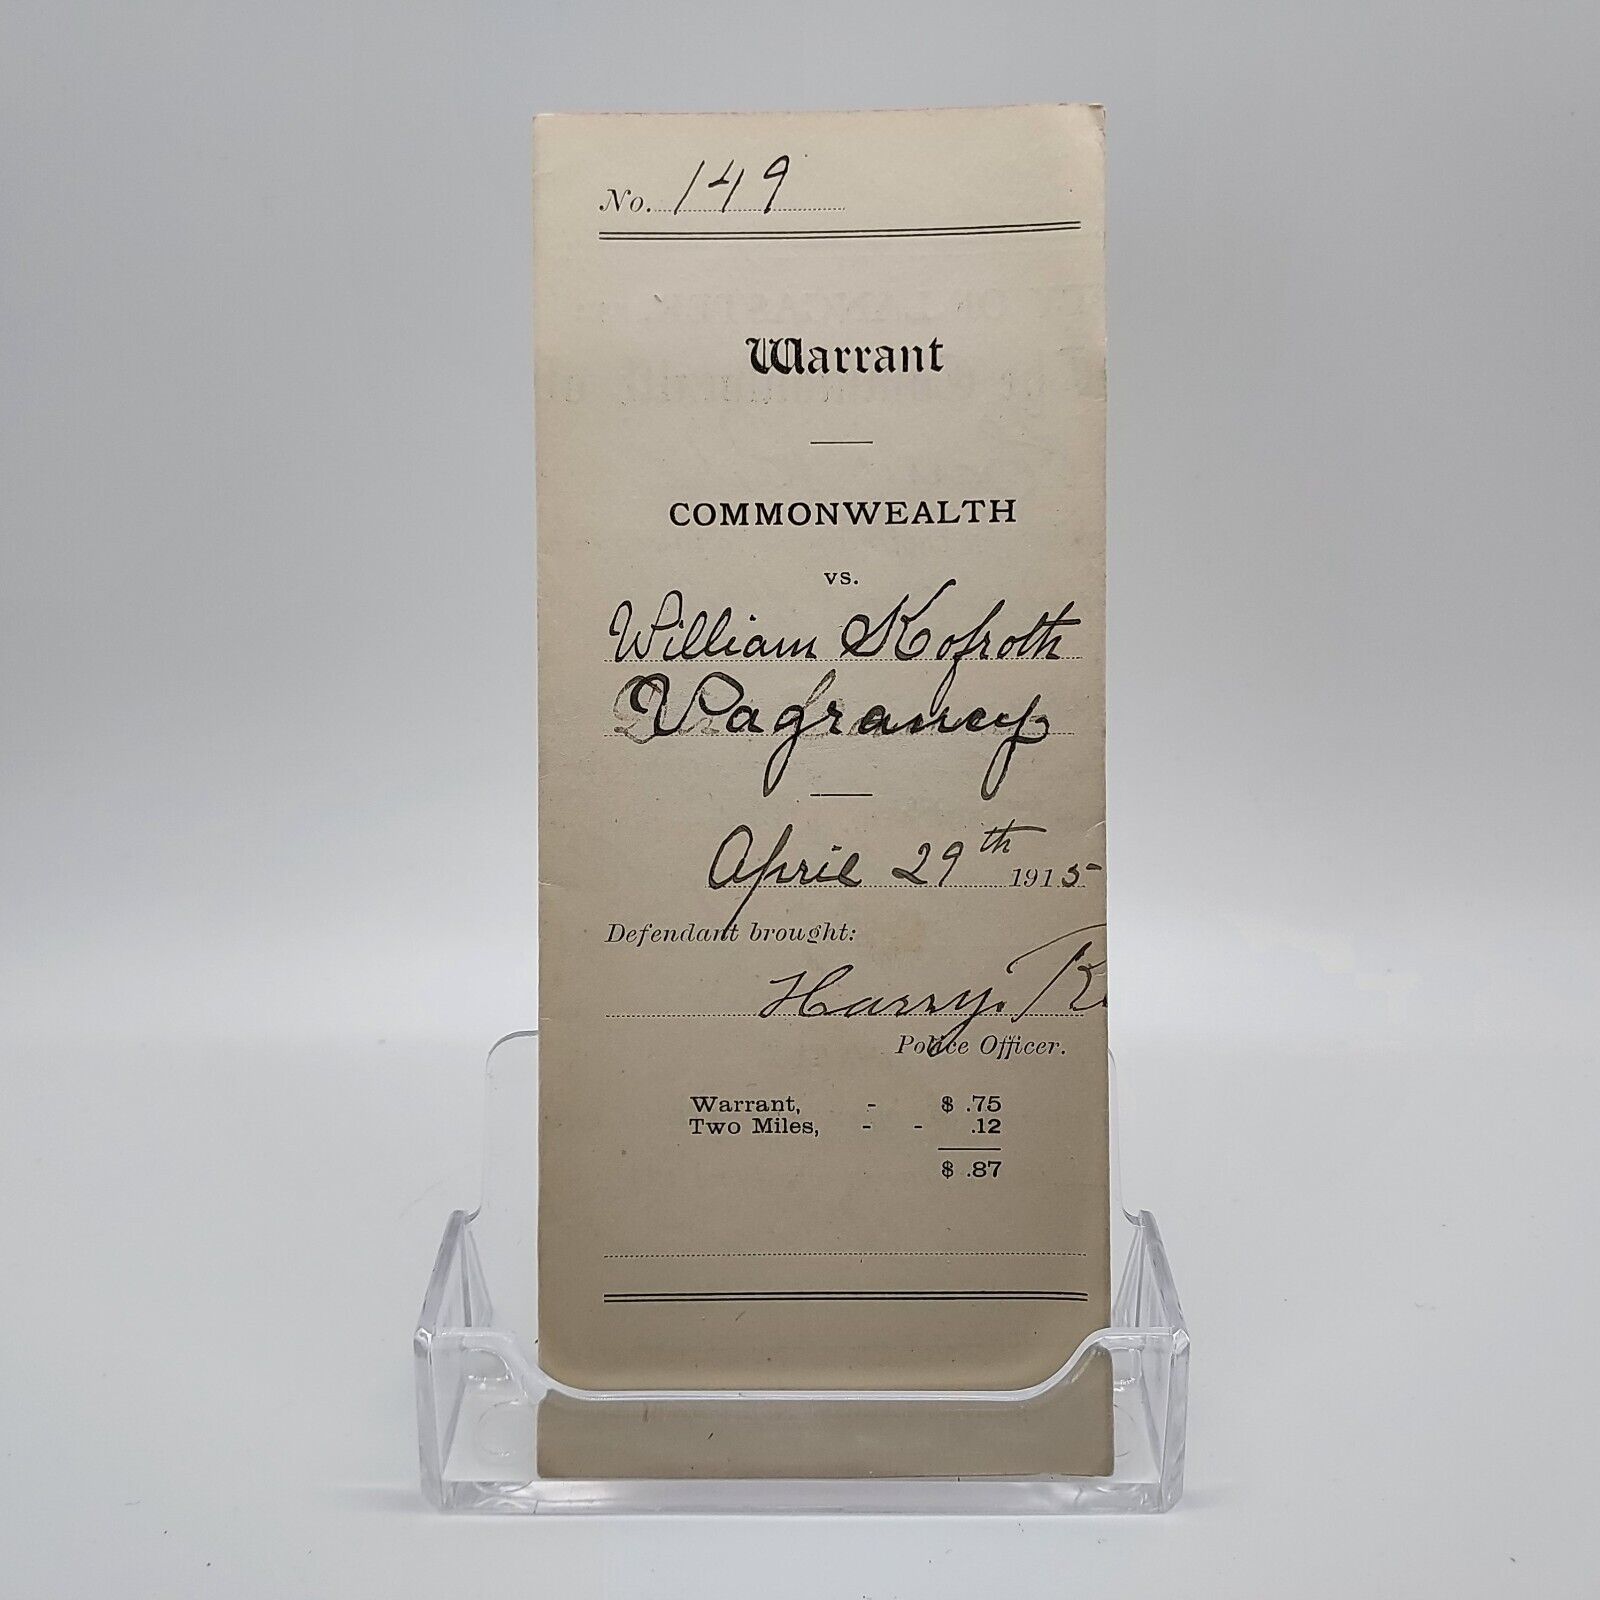 No. 149
Warrant
COMMONWEALTH
vs.
William Kofroth
Vagrancy
April 29th 1915
Defendant brought:
Harry.
Police Officer.
Warrant, - $ .75
Two Miles, - - .12
$ .87